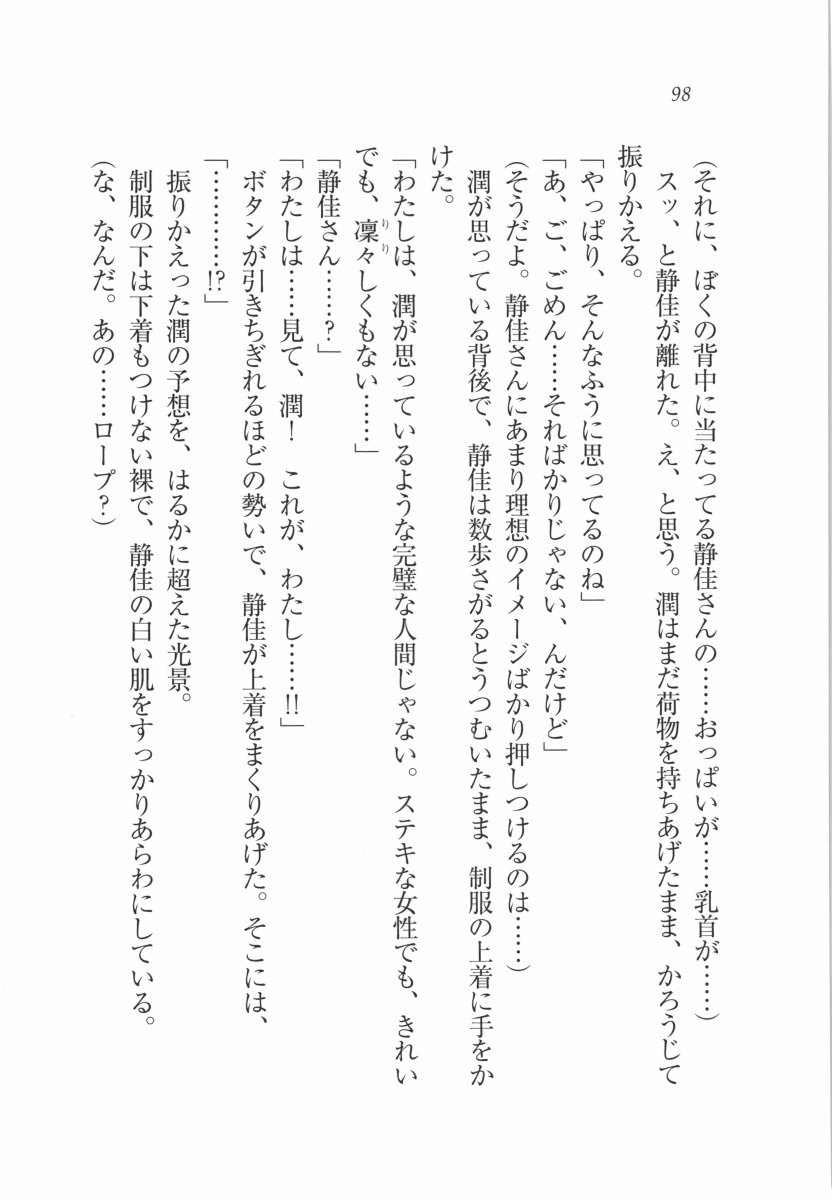 98
(それに、ぼくの背中に当たってる静佳さんの……おっぱいが……乳首が……)
スッ、と静佳が離れた。え、と思う。潤はまだ荷物を持ちあげたまま、かろうじて
振りかえる。
「やっぱり、そんなふうに思ってるのね」
「あ、ご、ごめん……そればかりじゃない、んだけど」
(そうだよ。静佳さんにあまり理想のイメージばかり押しつけるのは……)
潤が思っている背後で、静佳は数歩さがるとうつむいたまま、制服の上着に手をか
けた。
「わたしは、潤が思っているような完璧な人間じゃない。ステキな女性でも、きれい
でも、凜々しくもない……」
「静佳さん……?」
「わたしは……見て、潤! これが、わたし……!!」
ボタンが引きちぎれるほどの勢いで、静佳が上着をまくりあげた。そこには、
「…………!?」
振りかえった潤の予想を、はるかに超えた光景。
制服の下は下着もつけない裸で、静佳の白い肌をすっかりあらわにしている。
(な、なんだ。あの……ロープ?)